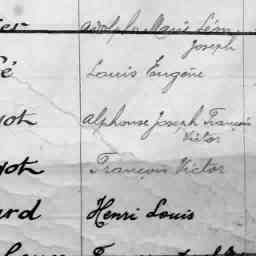 Adolphe Marie Léon
Joseph
Louis Eugène
Alphonse Joseph François
Victor
François Victor
ard Henri Louis